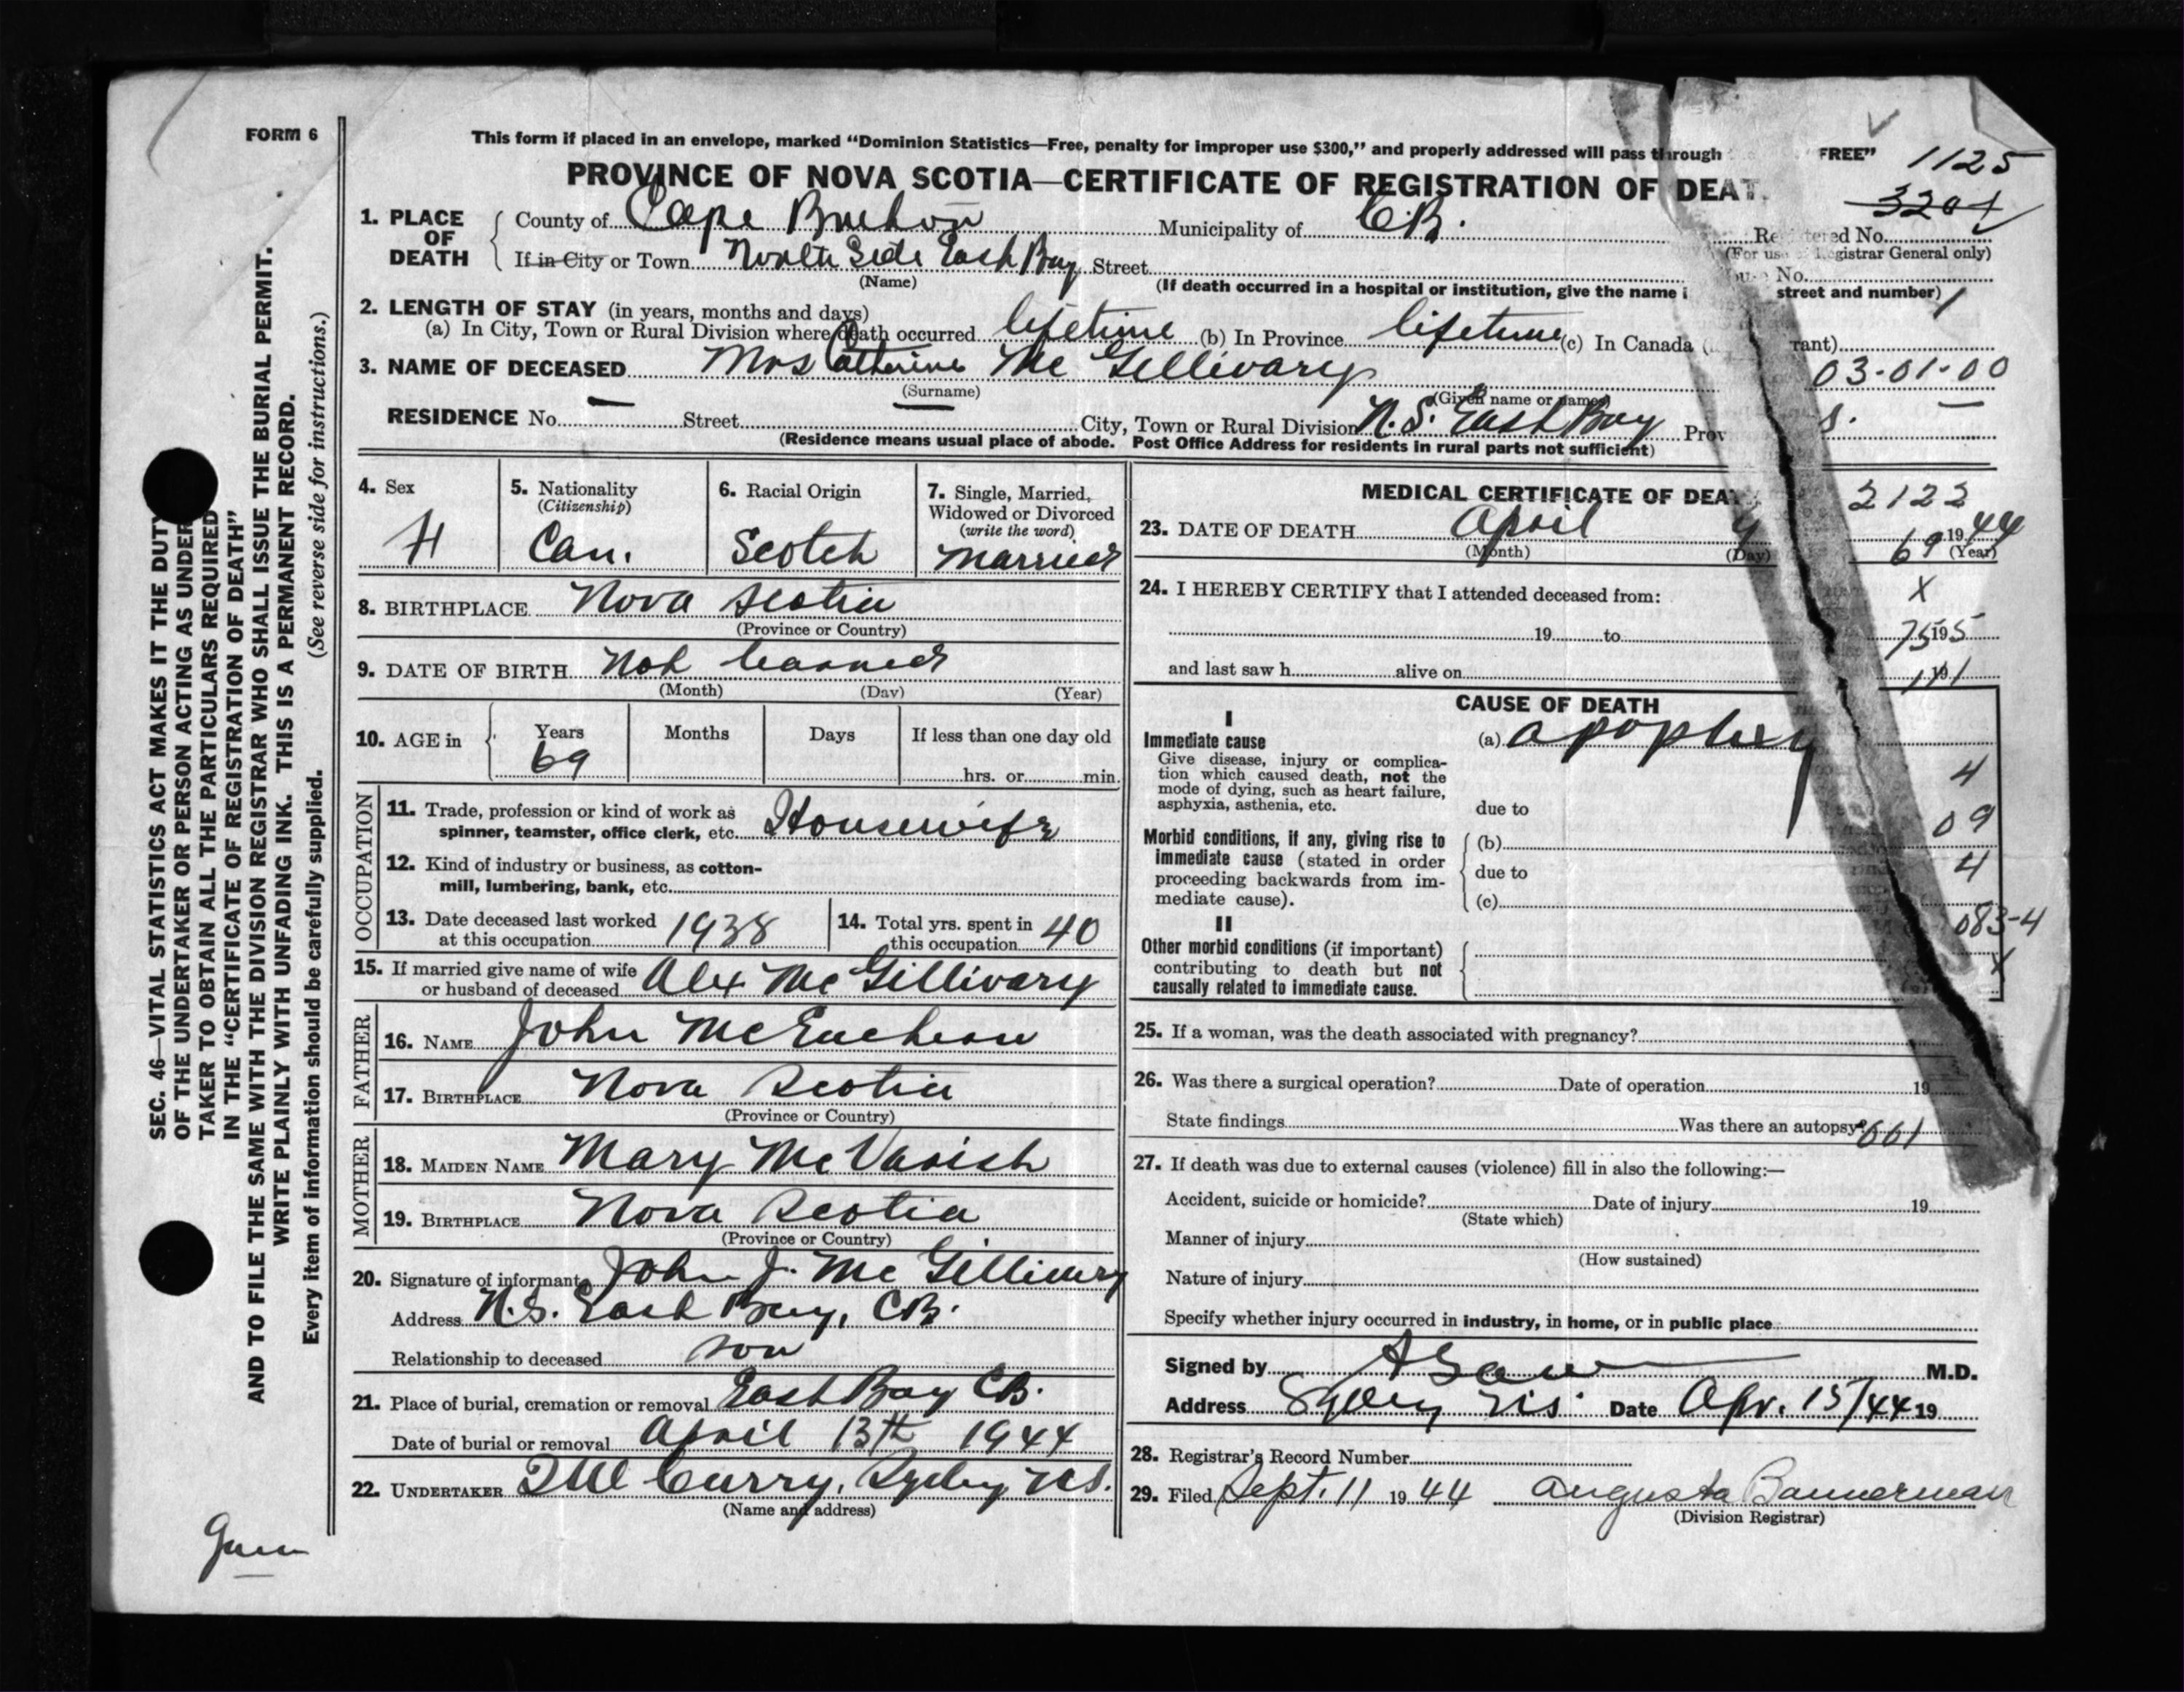 FORM 6
This form if placed in an envelope, marked “Dominion Statistics—Free, penalty for improper use $300,” and properly addressed will pass through FREE”
1125
PROVINCE OF NOVA SCOTIA—CERTIFICATE OF REGISTRATION OF DEAT
3201
1. PLACE OF DEATH
County of Cape Breton Municipality of C.B. Registered No.
(For use of Registrar General only)
If in City or Town North Side East Bay Street No.
(Name) (If death occurred in a hospital or institution, give the name i street and number)
2. LENGTH OF STAY (in years, months and days)
(a) In City, Town or Rural Division where death occurred lifetime (b) In Province lifetime (c) In Canada ( rant)
3. NAME OF DECEASED Mrs Catherine Mc Gillivary 03-01-00
(Surname) (Given name or names)
RESIDENCE No. — Street — City, Town or Rural Division N.S. East Bay Prov S. —
(Residence means usual place of abode. Post Office Address for residents in rural parts not sufficient)
4. Sex
5. Nationality
(Citizenship)
6. Racial Origin
7. Single, Married, Widowed or Divorced
(write the word)
Can. Scotch married
8. BIRTHPLACE Nova Scotia
(Province or Country)
9. DATE OF BIRTH Not learned
(Month) (Day) (Year)
10. AGE in Years Months Days If less than one day old
69 hrs. or min.
OCCUPATION
11. Trade, profession or kind of work as
spinner, teamster, office clerk, etc. Housewife
12. Kind of industry or business, as cotton-
mill, lumbering, bank, etc.
13. Date deceased last worked
at this occupation 1938
14. Total yrs. spent in
this occupation 40
15. If married give name of wife
or husband of deceased Alex Mc Gillivary
FATHER
16. NAME John McEachern
17. BIRTHPLACE Nova Scotia
(Province or Country)
MOTHER
18. MAIDEN NAME Mary Mc Varish
19. BIRTHPLACE Nova Scotia
(Province or Country)
20. Signature of informant John J. Mc Gillivary
Address N.S. East Bay, C.B.
Relationship to deceased son
21. Place of burial, cremation or removal East Bay C.B.
Date of burial or removal April 13th 1944
22. UNDERTAKER Curry, Sydney N.S.
(Name and address)
MEDICAL CERTIFICATE OF DEA
2122
23. DATE OF DEATH April 1944
(Month) (Day) (Year)
69
24. I HEREBY CERTIFY that I attended deceased from:
X
19 to 19
7555
and last saw h alive on 19
CAUSE OF DEATH
I
Immediate cause
Give disease, injury or complica-
tion which caused death, not the
mode of dying, such as heart failure,
asphyxia, asthenia, etc.
(a) apoplexy
4
due to
09
Morbid conditions, if any, giving rise to
immediate cause (stated in order
proceeding backwards from im-
mediate cause).
(b)
due to
4
(c)
083-4
II
Other morbid conditions (if important)
contributing to death but not
causally related to immediate cause.
X
25. If a woman, was the death associated with pregnancy?
26. Was there a surgical operation? Date of operation 19
State findings Was there an autopsy? 661
27. If death was due to external causes (violence) fill in also the following:—
Accident, suicide or homicide? Date of injury 19
(State which)
Manner of injury
(How sustained)
Nature of injury
Specify whether injury occurred in industry, in home, or in public place
Signed by M.D.
Address Sydney N.S. Date Apr. 15/44 19
28. Registrar’s Record Number
29. Filed Sept. 11 1944 Augusta Bannerman
(Division Registrar)
SEC. 46—VITAL STATISTICS ACT MAKES IT THE DUTY
OF THE UNDERTAKER OR PERSON ACTING AS UNDER
TAKER TO OBTAIN ALL THE PARTICULARS REQUIRED
IN THE “CERTIFICATE OF REGISTRATION OF DEATH”
AND TO FILE THE SAME WITH THE DIVISION REGISTRAR WHO SHALL ISSUE THE BURIAL PERMIT.
WRITE PLAINLY WITH UNFADING INK. THIS IS A PERMANENT RECORD.
Every item of information should be carefully supplied. (See reverse side for instructions.)